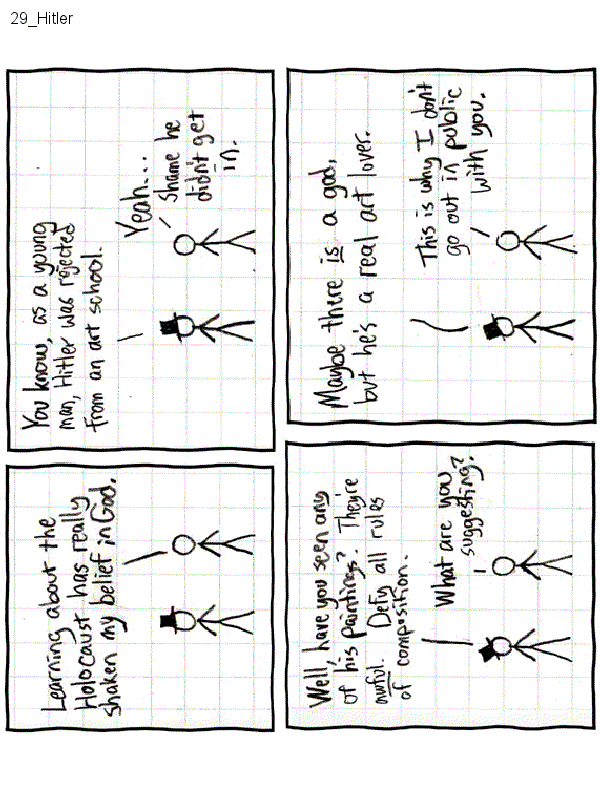 29_Hitler
Learning about the
Holocaust has really
shaken my belief in God.
You know, as a young
man, Hitler was rejected
from an art school.
Yeah...
Shame he
didn't get
in.
Well, have you seen any
of his paintings? They're
awful. Defy all rules
of composition.
What are you
suggesting?
Maybe there is a god,
but he's a real art lover.
This is why I don't
go out in public
with you.